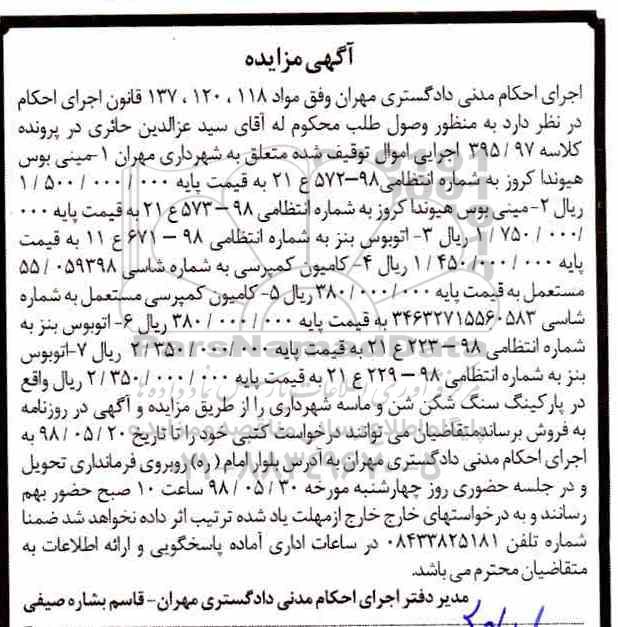 آگهی مزایده
اجرای احکام مدنی دادگستری مهران وفق مواد ۱۱۸ ، ۱۲۰ ، ۱۳۷ قانون اجرای احکام
در نظر دارد به منظور وصول طلب محکوم له آقای سید عزالدین حائری در پرونده
کلاسه ۹۷ / ۳۹۵ اجرایی اموال توقیف شده متعلق به شهرداری مهران ۱-مینی بوس
هیوندا کروز به شماره انتظامی ۹۸–۵۷۲ ع ۲۱ به قیمت پایه ۰۰۰ / ۰۰۰ / ۵۰۰ / ۱
ریال ۲-مینی بوس هیوندا کروز به شماره انتظامی ۹۸ – ۵۷۳ ع ۲۱ به قیمت پایه ۰۰۰
/۰۰۰ / ۷۵۰ / ۱ ریال ۳- اتوبوس بنز به شماره انتظامی ۹۸ – ۶۷۱ ع ۱۱ به قیمت
پایه ۰۰۰ / ۰۰۰/ ۴۵۰ / ۱ ریال ۴- کامیون کمپرسی به شماره شاسی ۰۵۹۳۹۸ / ۵۵
مستعمل به قیمت پایه ۰۰۰ / ۰۰۰ / ۳۸۰ ریال ۵- کامیون کمپرسی مستعمل به شماره
شاسی ۳۴۶۳۲۷۱۵۵۶۰۵۸۳ به قیمت پایه ۰۰۰ / ۰۰۰ / ۳۸۰ ریال ۶- اتوبوس بنز به
شماره انتظامی ۹۸ – ۲۲۳ ع ۲۱ به قیمت پایه ۰۰۰ / ۰۰۰ / ۳۵۰ / ۲ ریال ۷-اتوبوس
بنز به شماره انتظامی ۹۸ – ۲۲۹ ع ۲۱ به قیمت پایه ۰۰۰ / ۰۰۰ / ۳۵۰ / ۲ ریال واقع
در پارکینگ سنگ شکن شن و ماسه شهرداری را از طریق مزایده و آگهی در روزنامه
به فروش برساند متقاضیان می توانند درخواست کتبی خود را تا تاریخ ۲۰ / ۰۵ / ۹۸ به
اجرای احکام مدنی دادگستری مهران به آدرس بلوار امام (ره) روبروی فرمانداری تحویل
و در جلسه حضوری روز چهارشنبه مورخه ۳۰ / ۰۵ / ۹۸ ساعت ۱۰ صبح حضور بهم
رسانند و به درخواستهای خارج خارج ازمهلت یاد شده ترتیب اثر داده نخواهد شد ضمنا
شماره تلفن ۰۸۴۳۳۸۲۵۱۸۱ در ساعات اداری آماده پاسخگویی و ارائه اطلاعات به
متقاضیان محترم می باشد.
مدیر دفتر اجرای احکام مدنی دادگستری مهران– قاسم بشاره صیفی
ParsNamadData